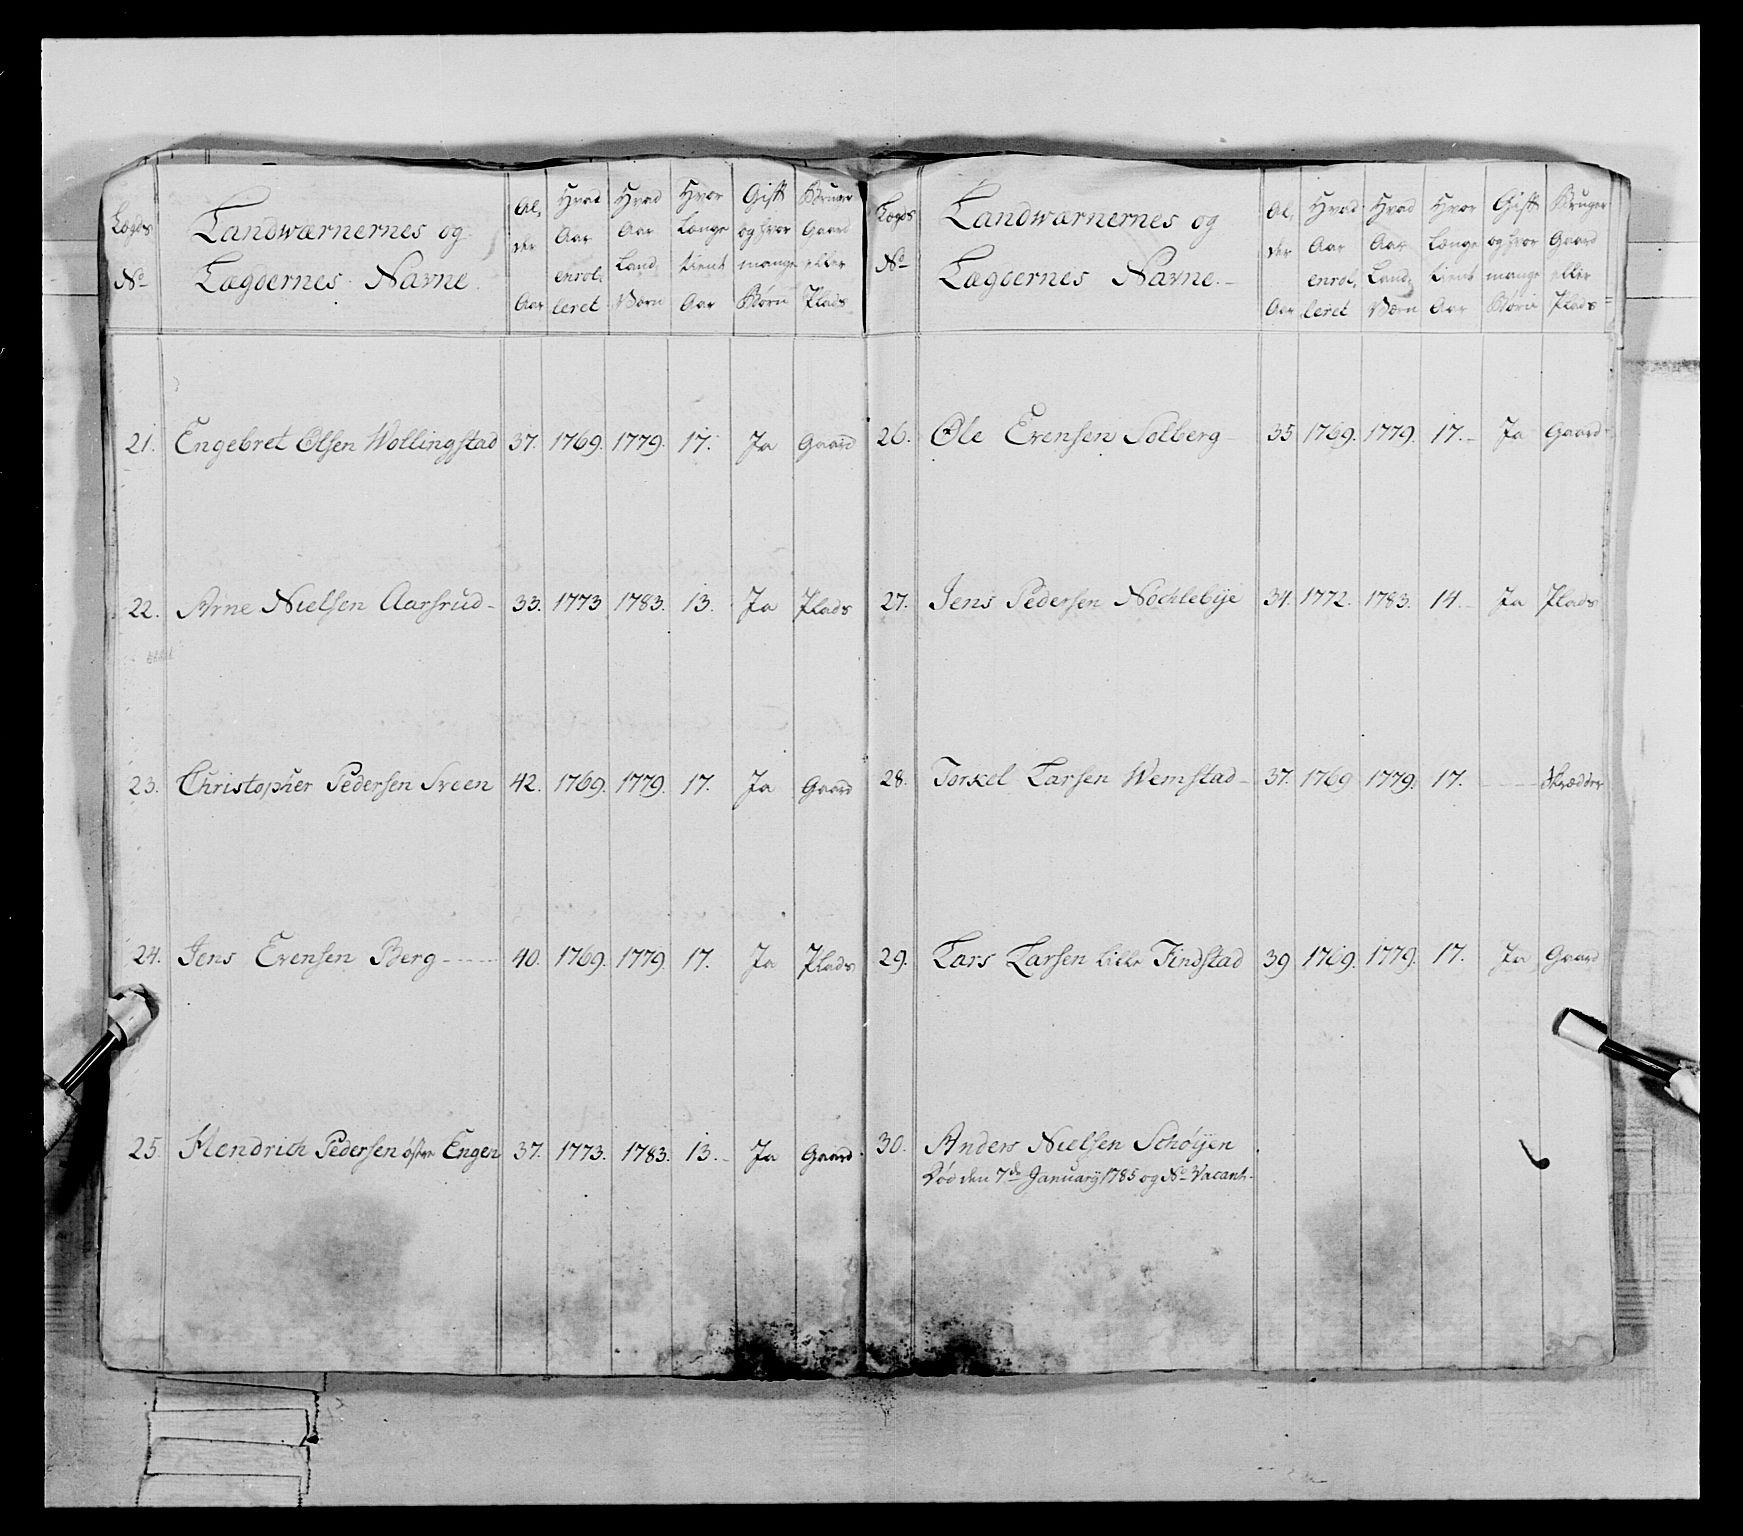 Lægds No Landwærnernes og Lægdernes Navne. Alder Aar Hvad Aar enrolleret Hvad Aar Land Værn Hvor Længe tient Aar Gift og hvor mange Børn Bruger Gaard eller Plads
21. Engebret Olsen Wollingstad 37. 1769. 1779. 17. Ja Gaard
22. Arne Nielsen Aarsrud - 33. 1773 1783. 13. Ja Plads
23. Christopher Pedersen Sveen 42. 1769. 1779. 17. Ja Gaard
24. Jens Evensen Berg - - - - - 40. 1769. 1779. 17. Ja Plads
25 Hendrich Pedersen østre Engen 37. 1773. 1783. 13. - Ja Gaard.
Lægds No Landwærnernes og Lægdernes Navne. - Alder Aar Hvad Aar enrolleret Hvad Aar Land Værn Hvor Længe tient Aar Gift og hvor mange Børn Bruger Gaard eller Plads
26. Ole Evensen Solberg - 35 1769. 1779. 17. - Ja Gaard
27. Jens Pedersen Nöchlebÿe 34. 1772. 1783. 14 - Ja Plads
28. Torkel Larsen Wemstad - 37. 1769 1779. 17. - - - - Skrædder
29. Lars Larsen lille Findstad 39 1769. 1779. 17. Ja Gaard
30. Anders Nielsen Schøÿen
Død den 7de Januarÿ 1785 og No Vacant.